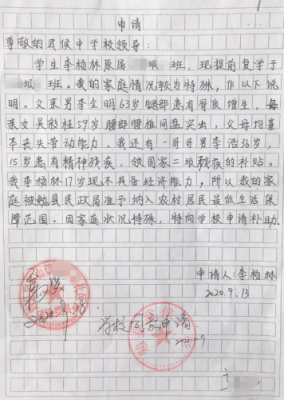 申请
尊敬的武侯中学校领导:
学生李杨林原属 级 班, 现提前复学于
级 班。我的家庭情况较为特殊, 作以下说
明。父亲男李全明63岁腿部患有骨质增生, 母
亲女吴彩柱59岁腰部腰椎间盘突出, 父母均基
本丧失劳动能力。我还有一哥哥男李浩36岁,
15岁患有精神残疾, 领国家二级残疾的补贴。
我李杨林17岁现不具备经济能力, 所以我的家
庭被勉县民政局准予纳入农村居民最低生活保
障范围。因家庭状况特殊, 特向学校申请补助.
申请人: 李杨林
2020.9.13
学校同意申请